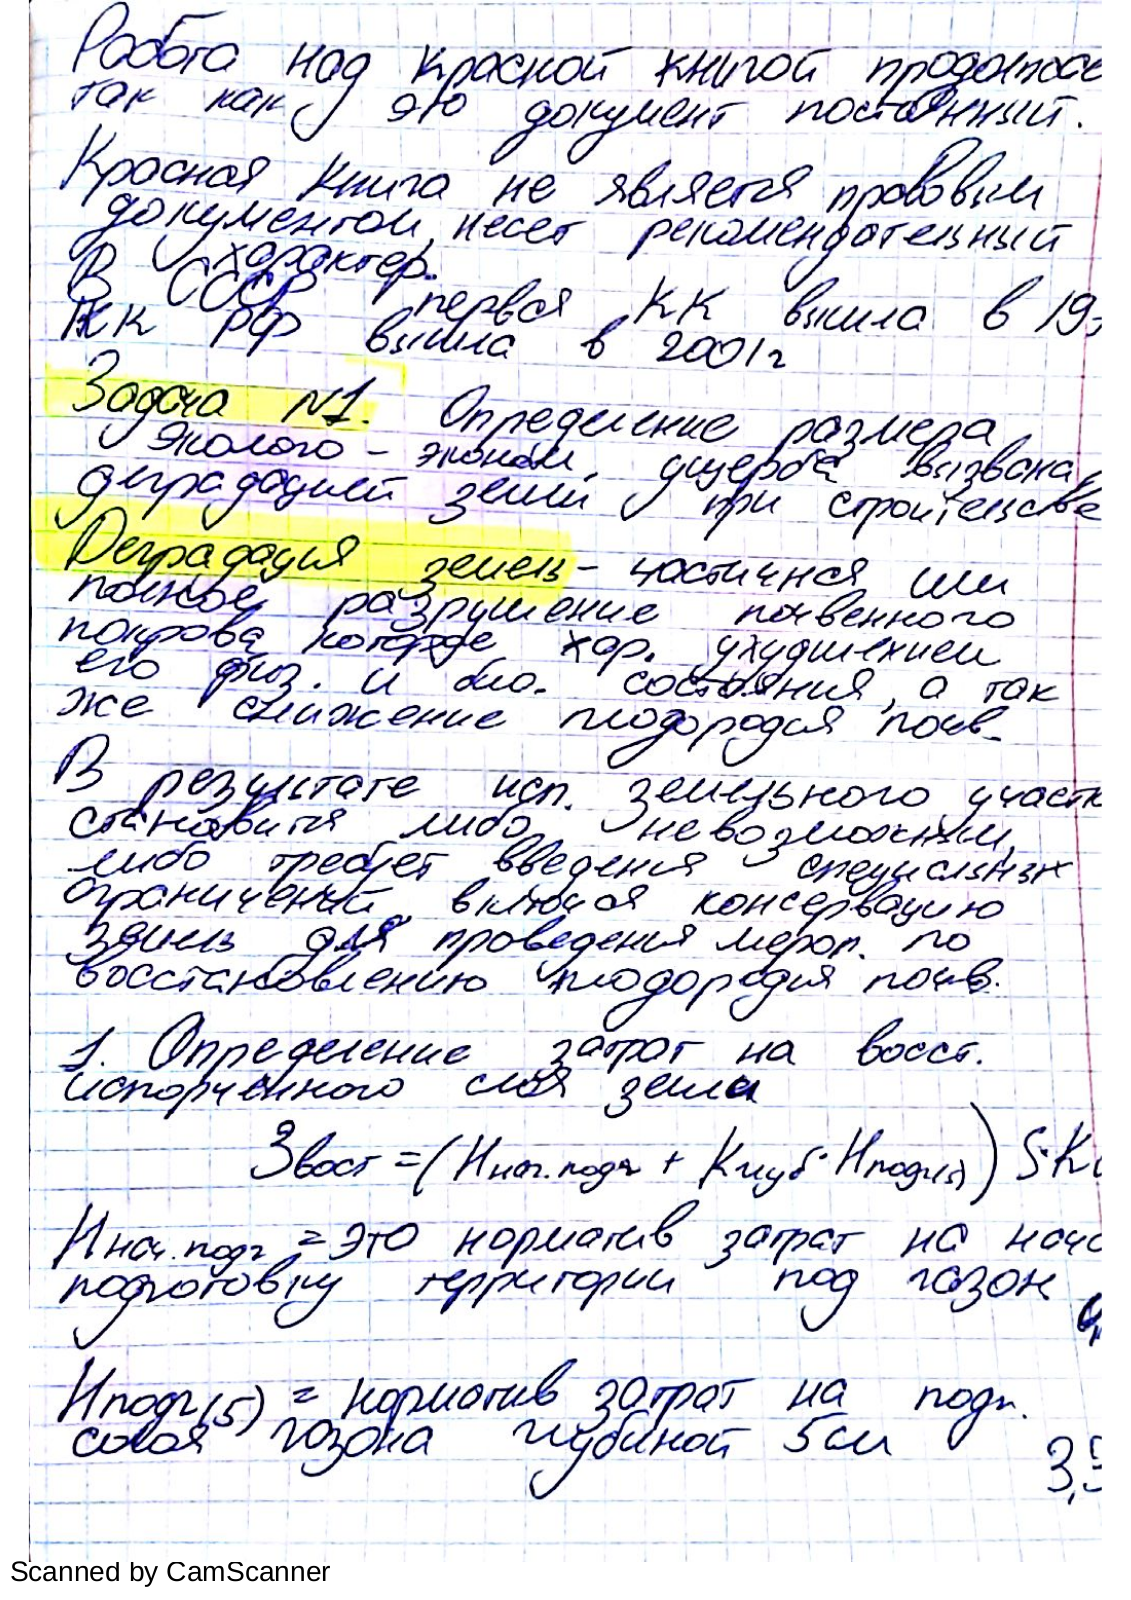 Работа над Красной книгой продолжае
так как это документ постоянный.
Красная книга не является прововым
документом, несет рекомендательный
характер.
В СССР первая КК вышла в 19
КК РФ вышла в 2001г
Задача №1. Определение размера
эколого - эконом. ущерба вызвана
деградацией земли при строительстве
Деградация земель - частичная или
полное разрушение почвенного
покрова, которое хар. ухудшением
его физ. и био. состояния, а так
же снижение плодородия почв.
В результате исп. земельного участк
становится либо невозможным,
либо требует введения специальных
ограничений, включая консервацию
земель для проведения мероп. по
восстановлению плодородия почв.
1. Определение затрат на восст.
испорченного слоя земли
Звост = (Ннач.подг + Kглуб · Нподг(5)) S·K
Ннач.подг = это норматив затрат на нача
подготовку территории под газон
Нподг(5) = норматив затрат на подг.
слоя газона глубиной 5см
3,5
Scanned by CamScanner